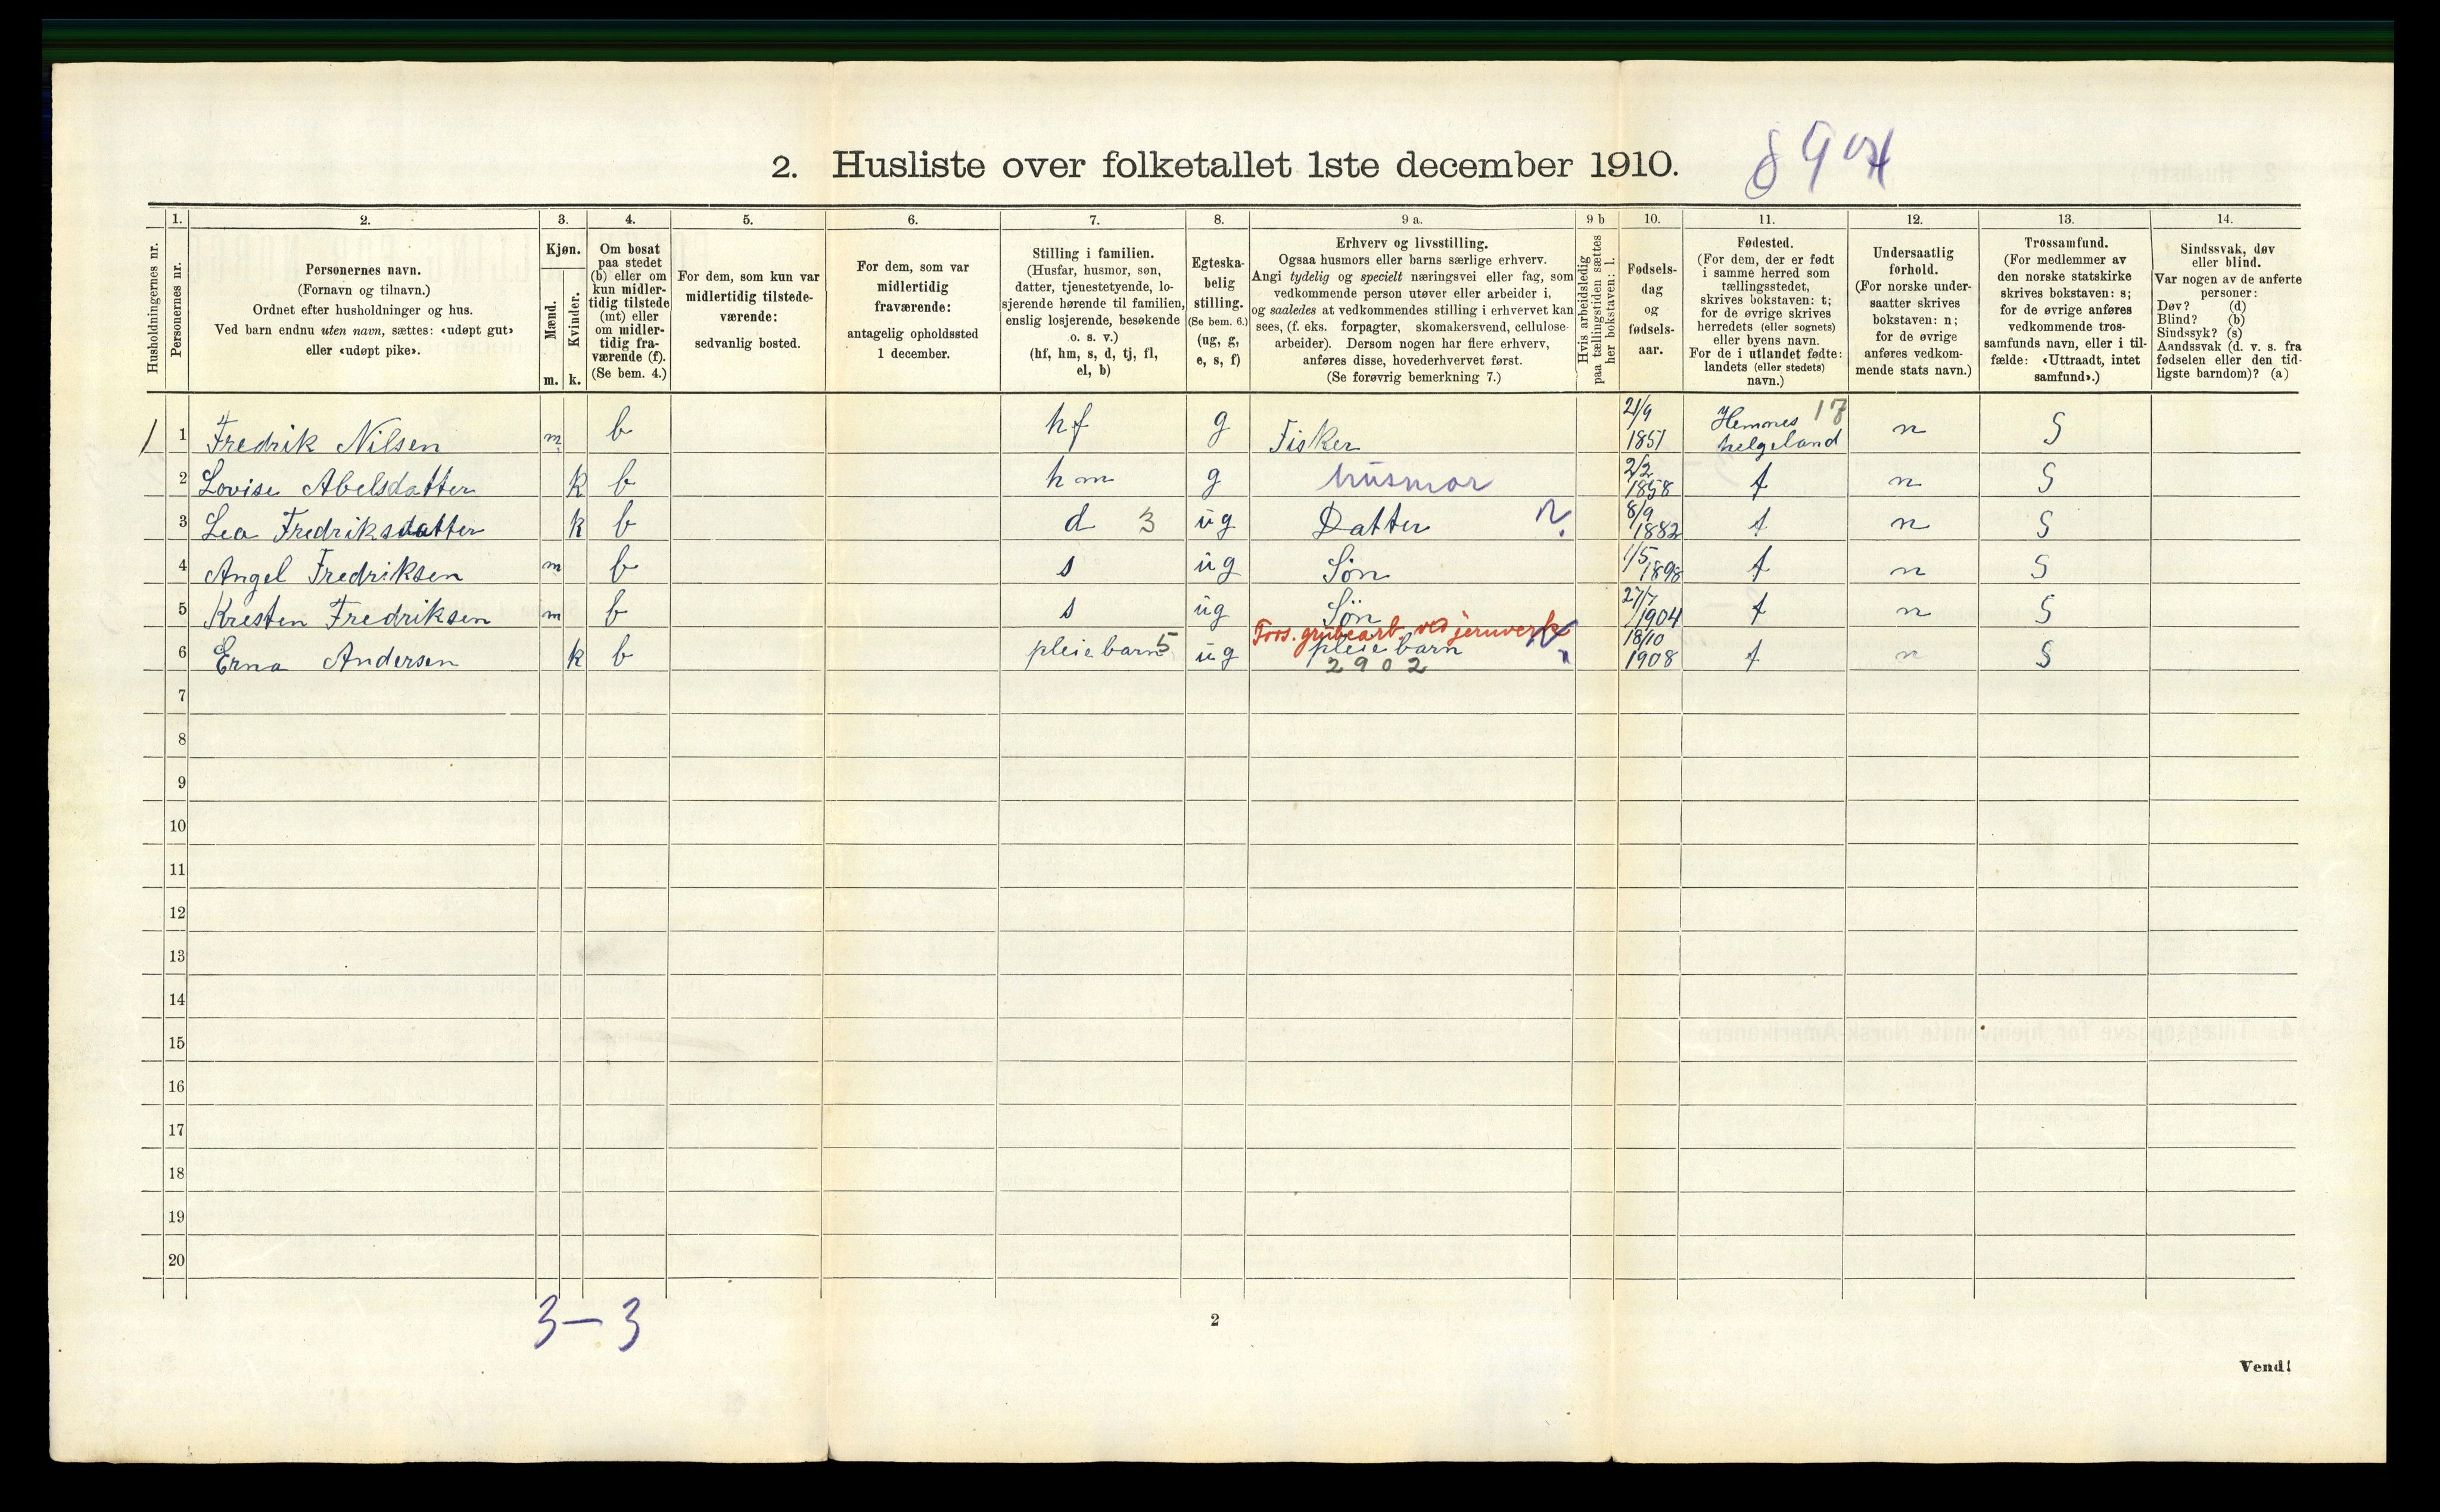 2. Husliste over folketallet 1ste december 1910.
1. 2. 3. 4. 5. 6. 7. 8. 9 a. 9 b 10. 11. 12. 13. 14.
Husholdningernes nr.
Personernes nr.
Personernes navn.
(Fornavn og tilnavn.)
Ordnet efter husholdninger og hus.
Ved barn endnu uten navn, sættes: «udøpt gut»
eller «udøpt pike».
Kjøn.
Mænd.
Kvinder.
m. k.
Om bosat
paa stedet
(b) eller om
kun midler-
tidig tilstede
(mt) eller
om midler-
tidig fra-
værende (f).
(Se bem. 4.)
For dem, som kun var
midlertidig tilstede-
værende:
sedvanlig bosted.
For dem, som var
midlertidig
fraværende:
antagelig opholdssted
1 december.
Stilling i familien.
(Husfar, husmor, søn,
datter, tjenestetyende, lo-
sjerende hørende til familien,
enslig losjerende, besøkende
o. s. v.)
(hf, hm, s, d, tj, fl,
el, b)
Egteska-
belig
stilling.
(Se bem. 6.)
(ug, g,
e, s, f)
Erhverv og livsstilling.
Ogsaa husmors eller barns særlige erhverv.
Angi tydelig og specielt næringsvei eller fag, som
vedkommende person utøver eller arbeider i,
og saaledes at vedkommendes stilling i erhvervet kan
sees, (f. eks. forpagter, skomakersvend, cellulose-
arbeider). Dersom nogen har flere erhverv,
anføres disse, hovederhvervet først.
(Se forøvrig bemerkning 7.)
Hvis arbeidsledig
paa tællingstiden sættes
her bokstaven: l.
Fødsels-
dag
og
fødsels-
aar.
Fødested.
(For dem, der er født
i samme herred som
tællingsstedet,
skrives bokstaven: t;
for de øvrige skrives
herredets (eller sognets)
eller byens navn.
For de i utlandet fødte:
landets (eller stedets)
navn.)
Undersaatlig
forhold.
(For norske under-
saatter skrives
bokstaven: n;
for de øvrige
anføres vedkom-
mende stats navn.)
Trossamfund.
(For medlemmer av
den norske statskirke
skrives bokstaven: s;
for de øvrige anføres
vedkommende tros-
samfunds navn, eller i til-
fælde: «Uttraadt, intet
samfund».)
Sindssvak, døv
eller blind.
Var nogen av de anførte
personer:
Døv? (d)
Blind? (b)
Sindssyk? (s)
Aandssvak (d. v. s. fra
fødselen eller den tid-
ligste barndom)? (a)
1 1 Fredrik Nilsen m b hf g Fisker 21/9 1851 Hemnes 17 helgeland n S
2 Lovise Abelsdatter k b hm g husmor 2/2 1858 t n S
3 Lea Fredriksdatter k b d 3 ug Datter 8/9 1882 t n S
4 Angel Fredriksen m b s ug Søn 1/5 1898 t n S
5 Kresten Fredriksen m b s ug Søn 27/7 1904 t n S
Fors. grubearb. ved jernverk
6 Erna Andersen k b pleiebarn 5 ug pleiebarn 18/10 1908 t n S
2902
7
8
9
10
11
12
13
14
15
16
17
18
19
20
3 — 3
2
Vend!